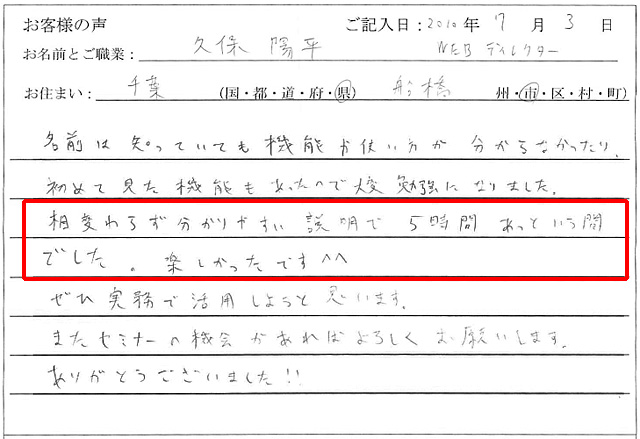 お客様の声 ご記入日：2010年 7月 3日
お名前とご職業： 久保 陽平 WEBディレクター
お住まい： 千葉 (国・都・道・府・県) 船橋 州・市・区・村・町)
名前は知っていても機能や使い方が分からなかったり、
初めて見た機能もあったので大変勉強になりました。
相変わらず分かりやすい説明で5時間あっという間
でした。楽しかったです^^
ぜひ実務で活用しようと思います。
またセミナーの機会があればよろしくお願いします。
ありがとうございました!!